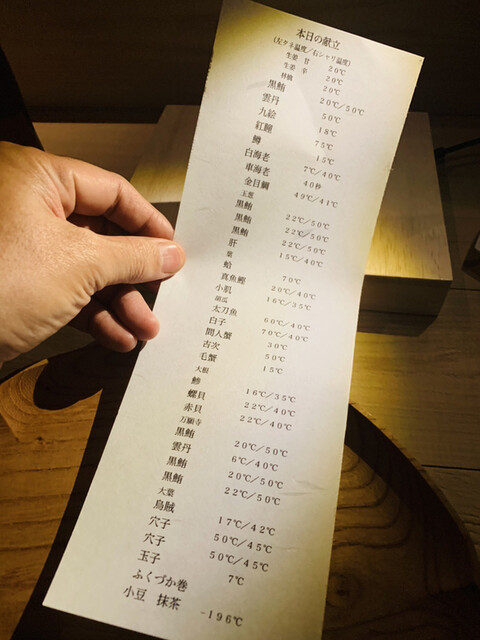 本日の献立
(左タネ温度/右シャリ温度)
生姜 甘 20℃
生姜 辛 20℃
林檎 20℃
黒鮪 20℃/50℃
雲丹 50℃
九絵 18℃
紅瞳 75℃
鱒 15℃
白海老 7℃/40℃
車海老 40秒
金目鯛 49℃/41℃
玉葱
黒鮪 22℃/50℃
黒鮪 22℃/50℃
黒鮪 22℃/50℃
肝 15℃/40℃
蛤 70℃
真魚鰹 20℃/40℃
小肌 16℃/35℃
胡瓜
太刀魚 60℃/40℃
白子 70℃/40℃
間人蟹 30℃
吉次 50℃
毛蟹 15℃
大根
鯵 16℃/35℃
螺貝 22℃/40℃
赤貝 22℃/40℃
万願寺
黒鮪 20℃/50℃
雲丹 6℃/40℃
黒鮪 20℃/50℃
黒鮪 22℃/50℃
大葉
烏賊 17℃/42℃
穴子 50℃/45℃
穴子 50℃/45℃
玉子 7℃
ふくづか巻
小豆 抹茶 -196℃